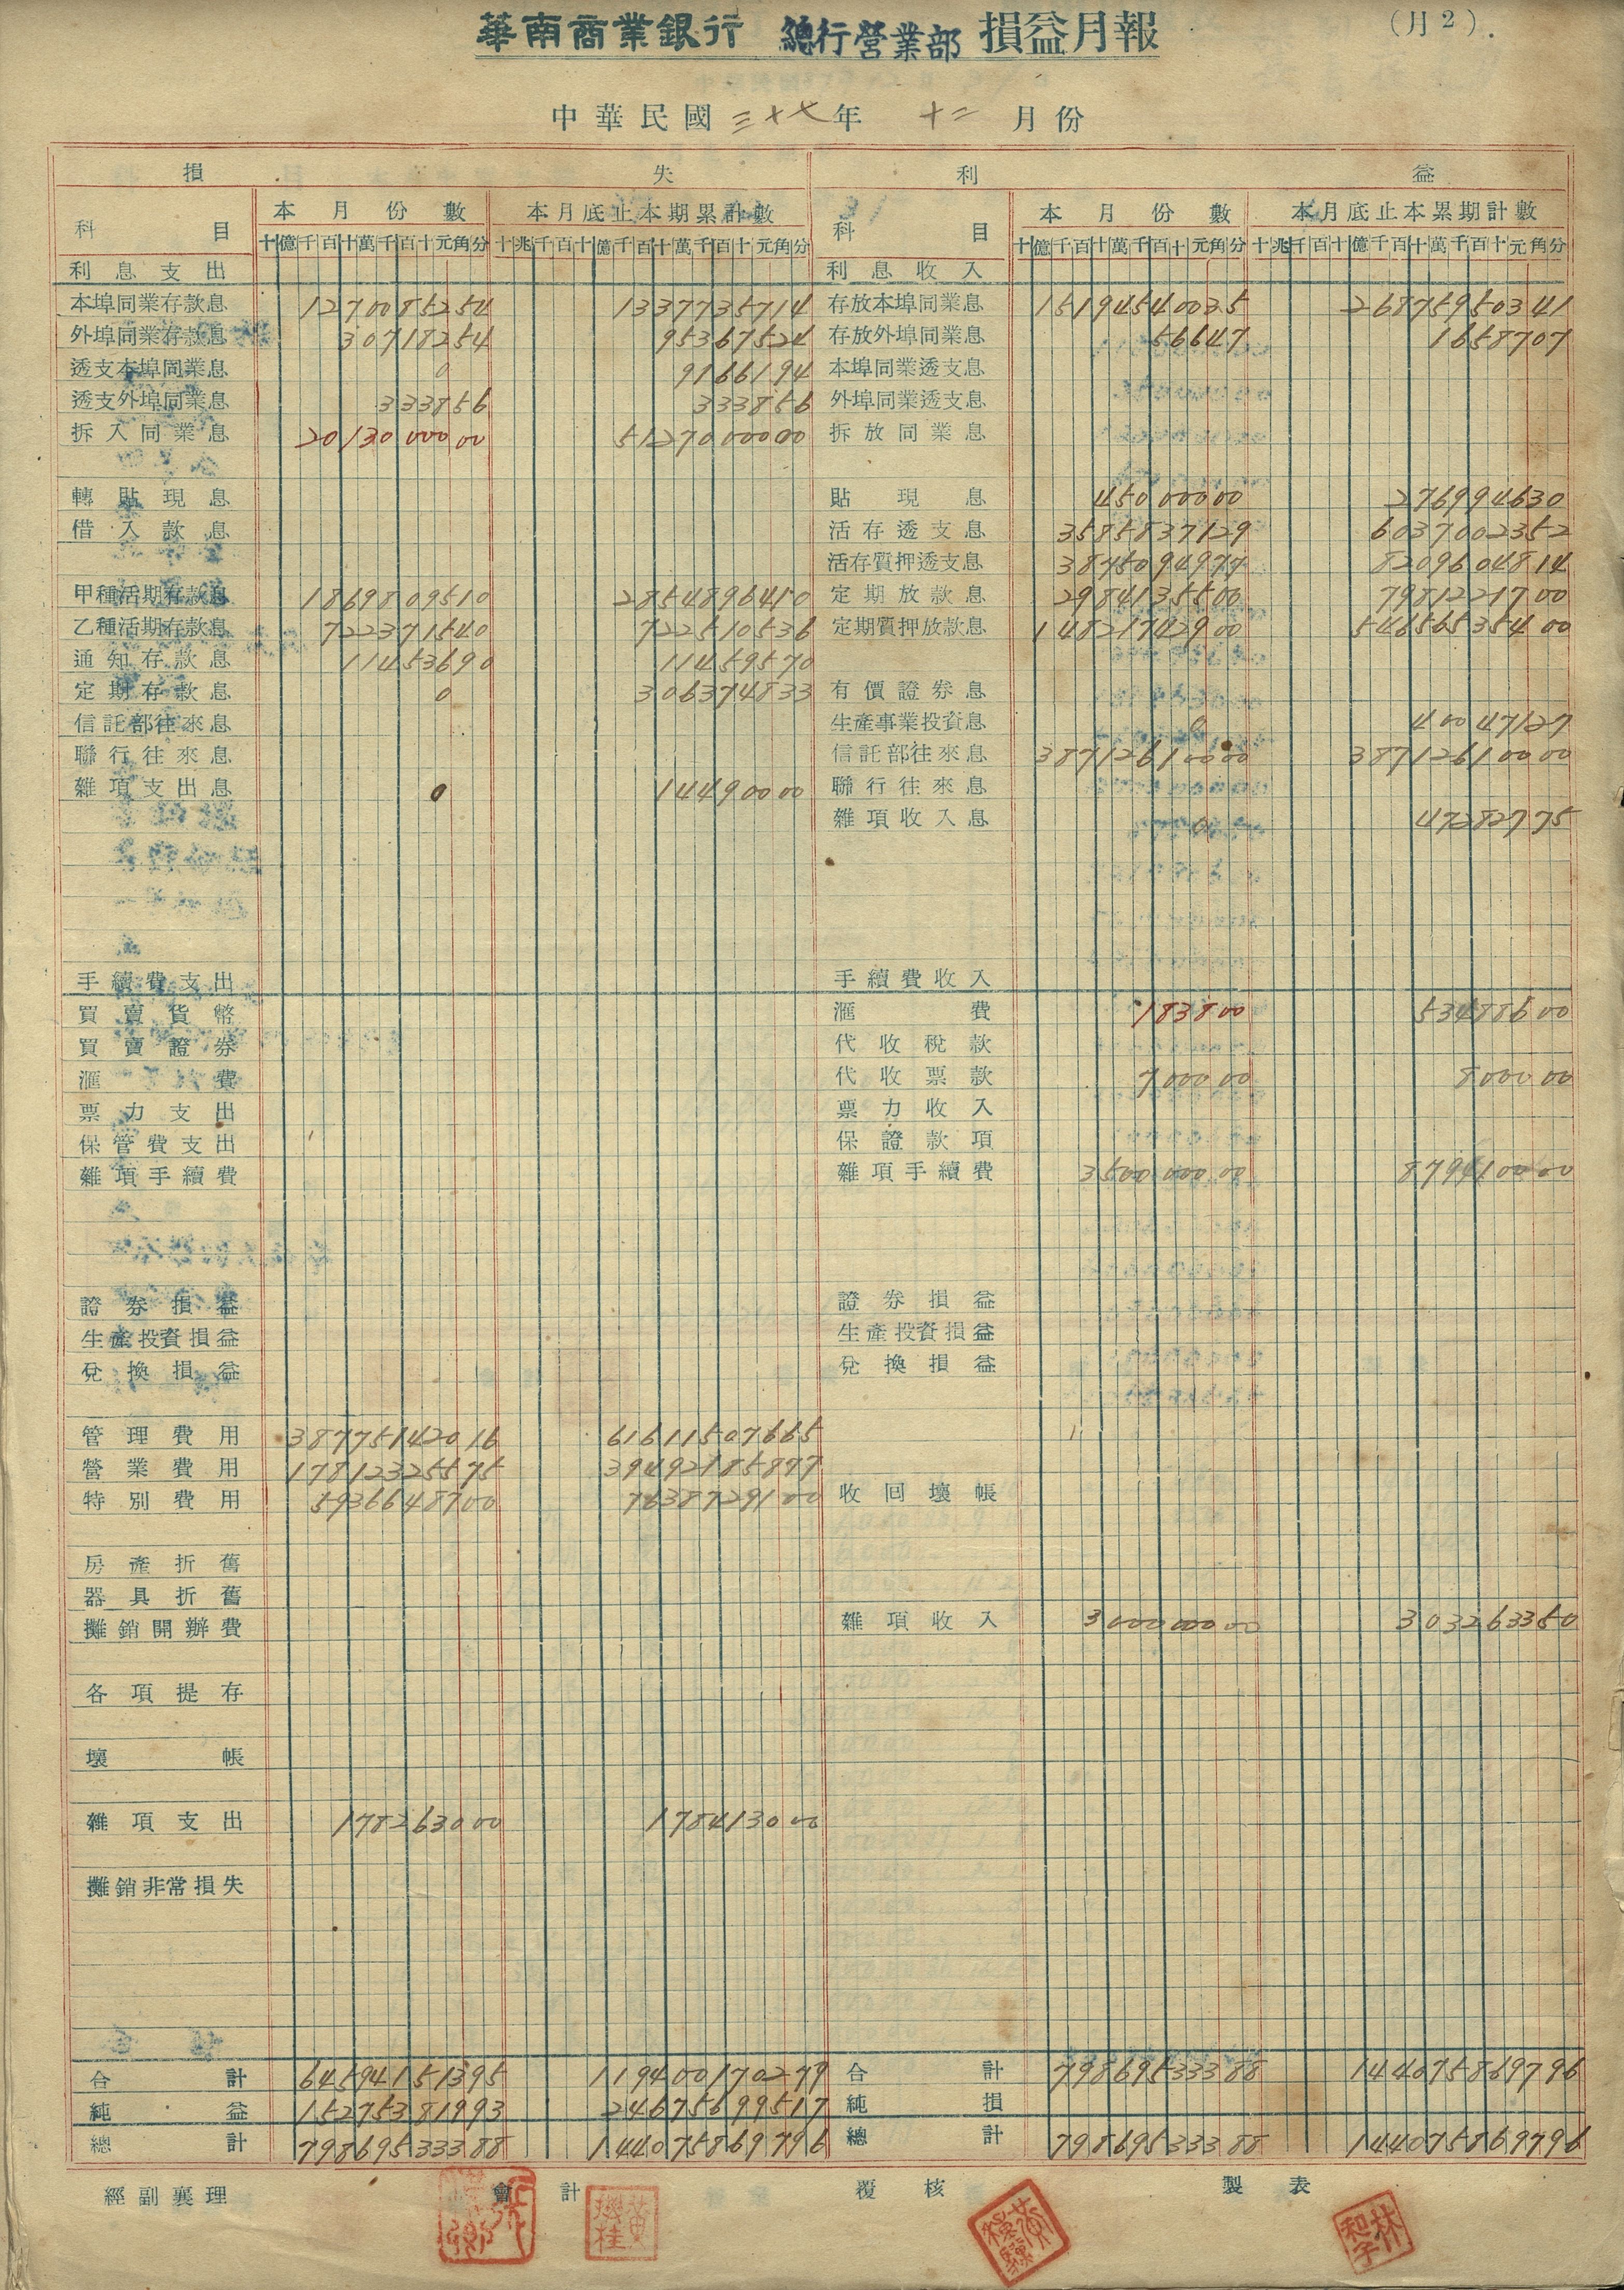 華南商業銀行 總行營業部 損益月報 (月2).
中華民國三十七年 十二月份
損 失 利 益
科目 本月份數 本月底止本期累計數 科目 本月份數 本月底止本累期計數
十億千百十萬千百十元角分 十兆千百十億千百十萬千百十元角分 十億千百十萬千百十元角分 十兆千百十億千百十萬千百十元角分
利息支出 利息收入
本埠同業存款息 1270085254 1337735714 存放本埠同業息 15194540035 26875950341
外埠同業存款息 30718254 95367524 存放外埠同業息 56647 1658707
透支本埠同業息 0 9166194 本埠同業透支息
透支外埠同業息 333856 333856 外埠同業透支息
拆入同業息 2013000000 5127000000 拆放同業息
轉貼現息 貼現息 45000000 276994630
借入款息 活存透支息 3585837129 6037002352
活存質押透支息 3875094977 8209604814
甲種活期存款息 1869809510 2854896410 定期放款息 2984135500 7981221700
乙種活期存款息 722371540 722510536 定期質押放款息 14821742900 54656535400
通知存款息 11453690 11459570
定期存款息 0 306374833 有價證券息
信託部往來息 生產事業投資息 0 40047127
聯行往來息 信託部往來息 38712610000 38712610000
雜項支出息 0 14490000 聯行往來息
雜項收入息 0 47282775
手續費支出 手續費收入
買賣貨幣 滙費 183800 53488600
買賣證券 代收稅款
滙費 代收票款 700000 800000
票力支出 票力收入
保管費支出 保證款項
雜項手續費 雜項手續費 350000000 879410000
證券損益 證券損益
生產投資損益 生產投資損益
兌換損益 兌換損益
管理費用 38775142016 61611507665
營業費用 17812325575 39492185877
特別費用 5936648700 7638729100 收回壞帳
房產折舊
器具折舊
攤銷開辦費 雜項收入 300000000 303263350
各項提存
壞帳
雜項支出 178263000 178413000
攤銷非常損失
合計 64594151395 119400170279 合計 79869533388 144075869796
純益 15275381993 24675699517 純損
總計 79869533388 144075869796 總計 79869533388 144075869796
經副襄理 會計 覆核 製表
黃
林和子